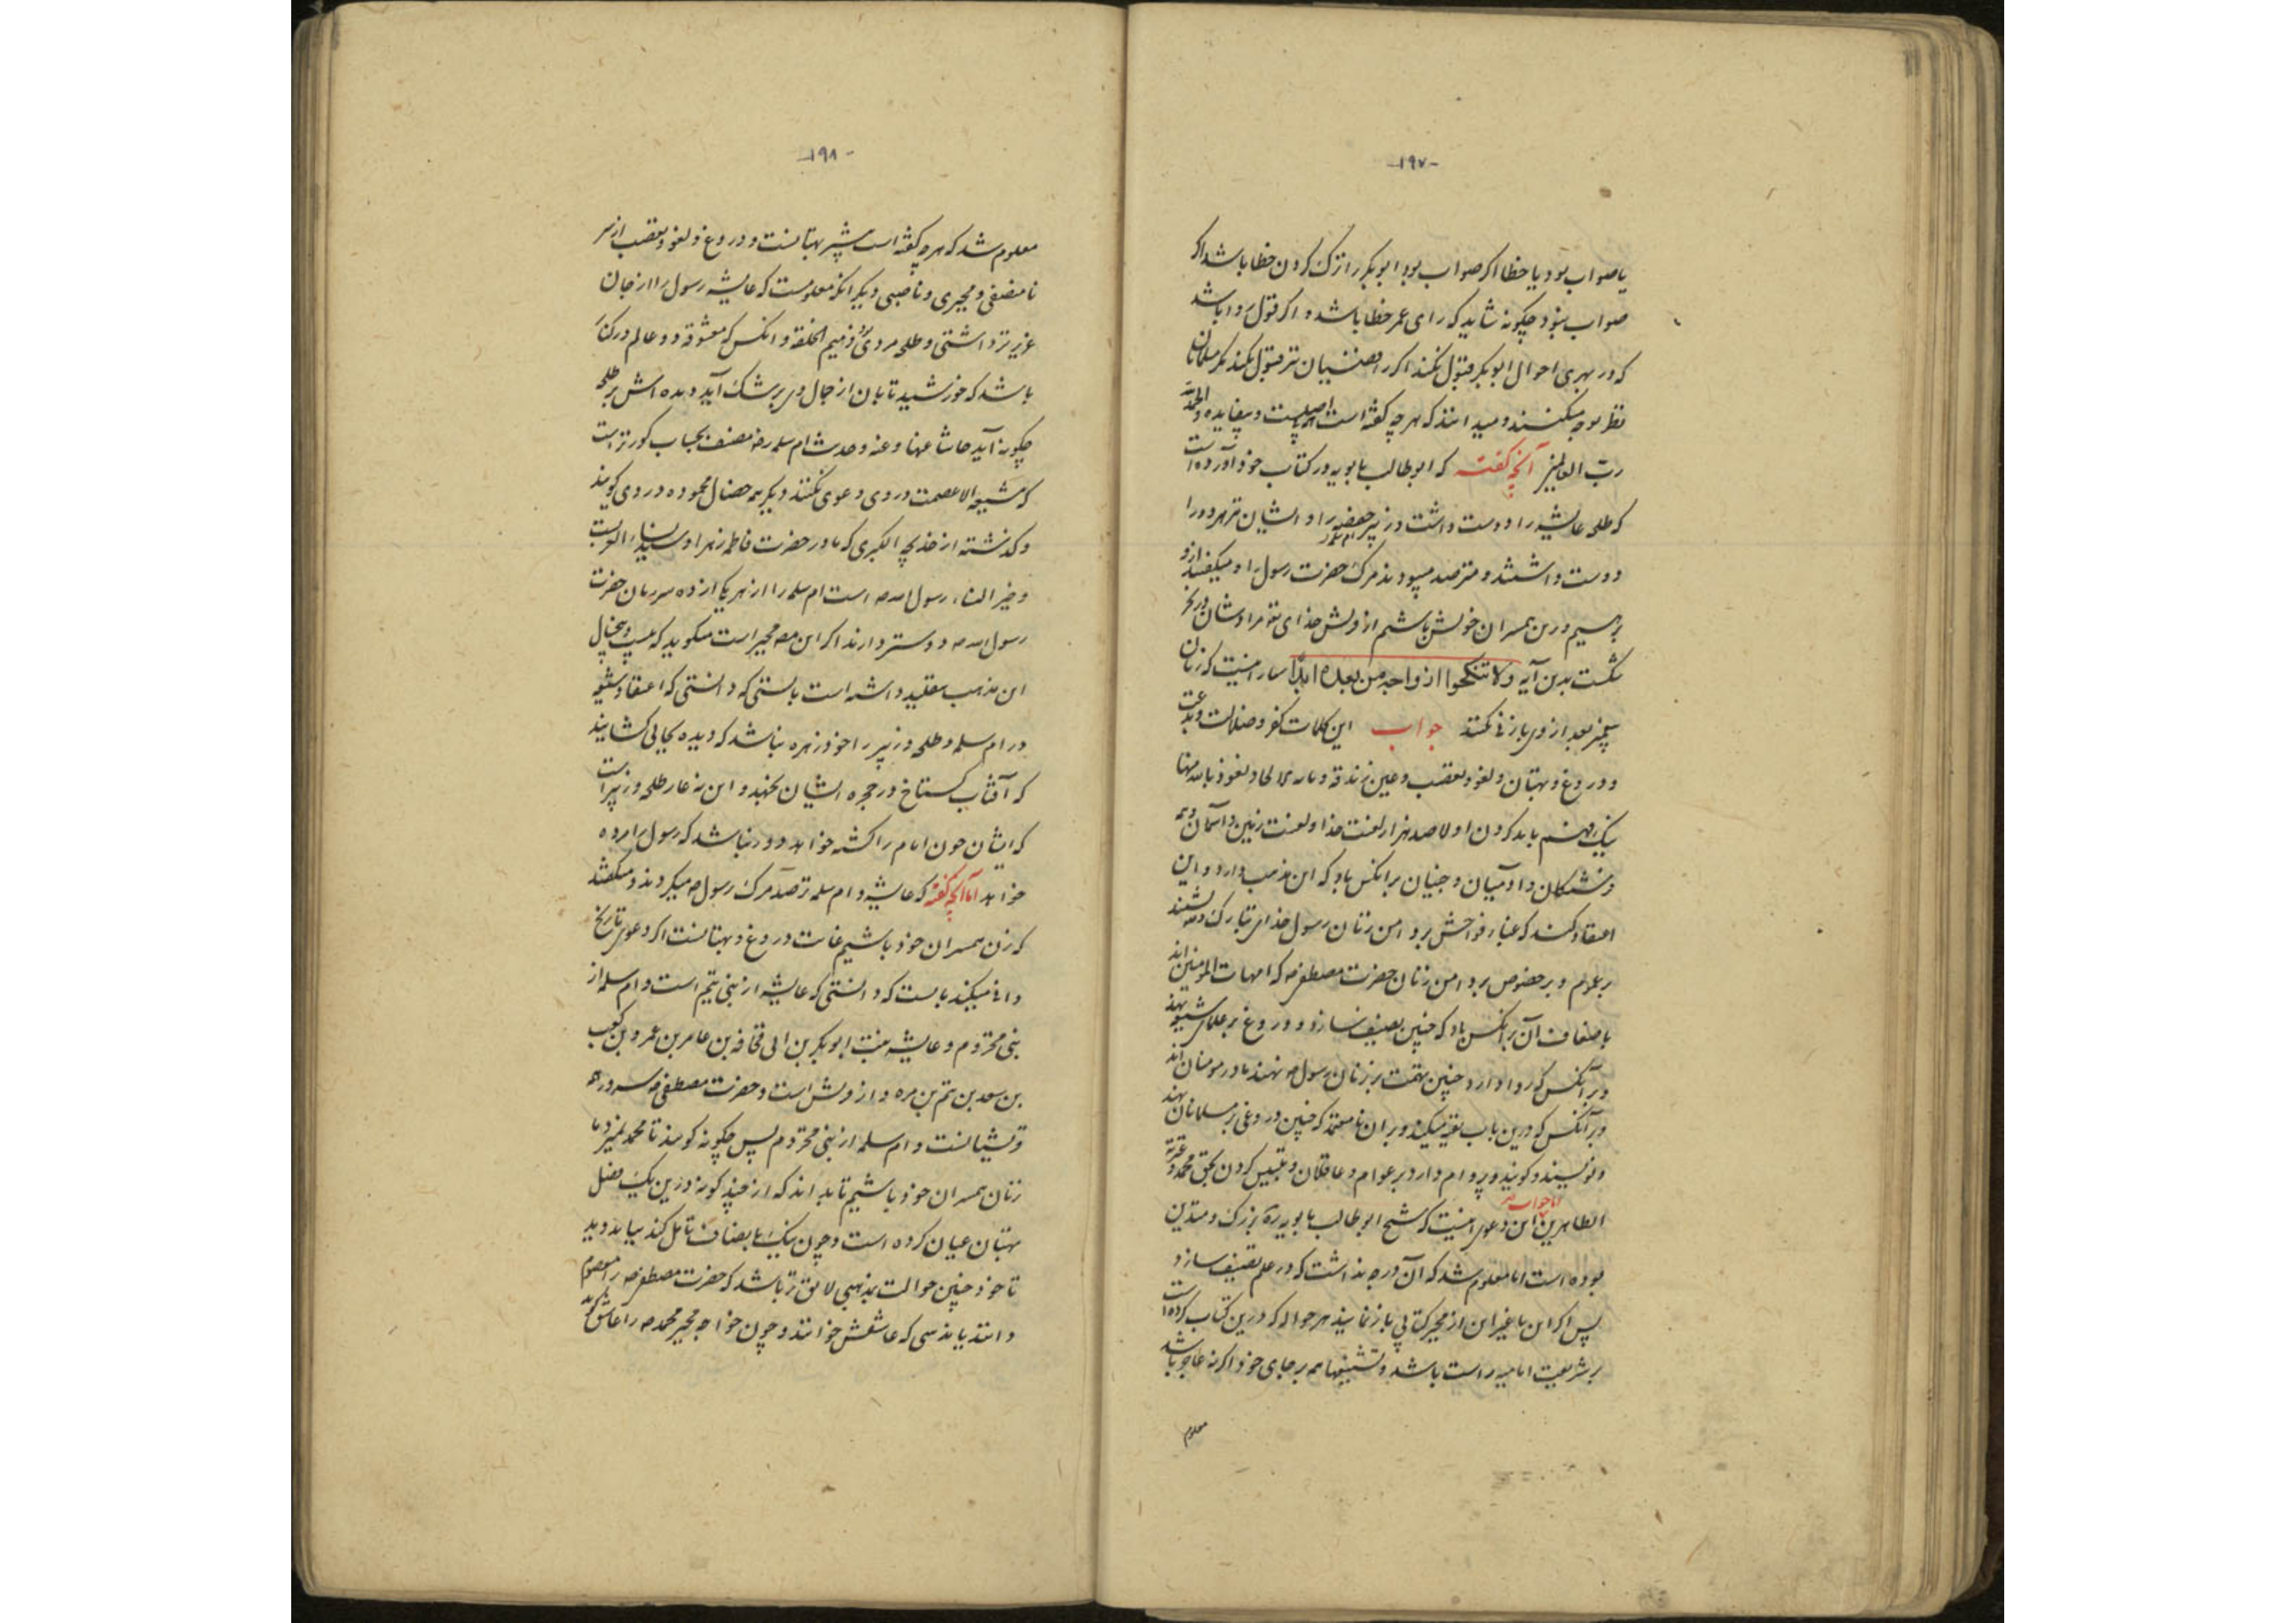 -۱۹۷-
یا صواب بود یا خطا اکر صواب بود ابوبکر را ترک کردن خطا باشد اکر
صواب نبود چکونه شاید که رای عمر خطا باشد و اکر قول روا باشد
که در بهری احوال ابوبکر قبول نکند اکر رافضیان نیز قبول نکند مکر مسلمانان
نظر بوجه میکنند و میدانند که هر چه کفته است بی اصلست و بیفایده والحمد لله
ربّ العالمین آنچه کفته که ابوطالب بابویه در کتاب خود آورده است
که طلحه عایشه را دوست داشت و زبیر حفصه را و ایشان نیز هر دو را
دوست داشتند و مترصد میبودند مرک حضرت رسول را و میکفتند از او
برهیم و زن همسران خویش باشیم از قریش خدای تع مراد شان در بحر
شکست بدین آیه ولا تنکحوا ازواجه من بعده ابدا بیان اینست که زنان
پیغمبر بعد از وی باز نی نکنند جواب این کلمات کفر و ضلالت و بدعت
و دروغ و بهتان و لغو و تعصب و عین زندقه و الحاد نعوذ بالله منها
یک رقم باید کردن اولا صد هزار لعنت خدا و لعنت زمین و آسمان و همه
فرشتکان و آدمیان و جنیان بر انکس باد که این مذهب دارد و این
اعتقاد کند که غبار فواحش بر دامن زنان رسول خدای تبارک و تع نشیند
بر عموم و بر خصوص بر دامن زنان حضرت مصطفی ص که امهات المومنین اند
باضعاف آن بر انکس باد که چنین تصنیف سازد و دروغ بر علمای شیعه نهد
و بر آنکس که روا دارد چنین تهمت بر زنان رسول ص نهند مادر مومنان اند
و بر آنکس که درین باب تقیه میکند و بر ان نا معتمد که چنین دروغی بر مسلمانان نهند
و نویسند و کویند و بر وام دارد بر عوام و عاقلان و تلبیس کردن بحق محمد و عترته
الطاهرین اما جواب این دعوی اینست که شیخ ابوطالب بابویه ره بزرک و متدین
بوده است اما معلوم شد که آن درجه نداشت که در علم تصنیف سازد
پس اکر این یا غیر این از مجبر کتابی باز نمایند هر حواله که درین کتاب کرده است
بر شریعت امامیه راست باشد و تشنیعها همه بر جای خود اکر نه عاجز باشد
معلوم
-۱۹۸-
معلوم شد که هر چه کفته است بیشتر بهتانست و دروغ و لغو و تعصب از سر
نا منصفی و مجبری و ناصبی دیکر انکه معلومست که عایشه رسول را از جان
عزیزتر داشتی و طلحه مردی ذمیم الخلقه و انکس که معشوقه دو عالم در کنار
باشد که خورشید تابان از جمال وی برشک آید دیده اش بر طلحه
چکونه آید حاشا عنها و عنه و حدیث ام سلمه رض مصنف بحساب کورتر است
که شیعه الا عصمت در وی دعوی نکنند دیکر همه خصال محموده در وی کویند
و کذشته از خدیجه الکبری که مادر حضرت فاطمه زهرا و سیدة نساء العرب
و خیر النساء رسول الله ص است ام سلمه را از هر یکی از ده سر زنان حضرت
رسول الله ص دوستر دارند اکر این مجبر است میکوید که بیست و پنج سال
این مذهب تقلید داشته است بایستی که دانستی که اعتقاد شیعه
در ام سلمه و طلحه و زبیر را خود زهره نباشد که دیده بجایی کشایند
که آفتاب کستاخ در حجره ایشان نجهد و این نه عار طلحه و زبیر است
که ایشان خون امام را کشته خواهند و در دنیا شد که رسول را مرده
خواهند اما آنچه کفته که عایشه و ام سلمه ترصد مرک رسول ص میکردند و میکفتند
که زن همسران خود باشیم غایت دروغ و بهتانست اکر دعوی تاریخ
دانی میکند بایست که دانستی که عایشه از بنی تیم است و ام سلمه از
بنی مخزوم و عایشه بنت ابوبکر بن ابی قحافه بن عامر بن عمرو بن کعب
بن سعد بن تیم بن مره و از قریش است و حضرت مصطفی ص سرور
قریشیانست و ام سلمه از بنی مخزوم پس چکونه کویند تا محمد بمیرد ما
زنان همسران خود باشیم تا بداند که از چند کونه درین یک فصل
بهتان عیان کرده است و چون نیک بانصاف تامل کند بیابد و بدید
تا خود چنین حوالت بمذهبی لایق تر باشد که حضرت مصطفی ص را معصوم
دانند یا مذهبی که عاشقش خوانند و چون خواجه مجبر محمد ص را عاشق کوید